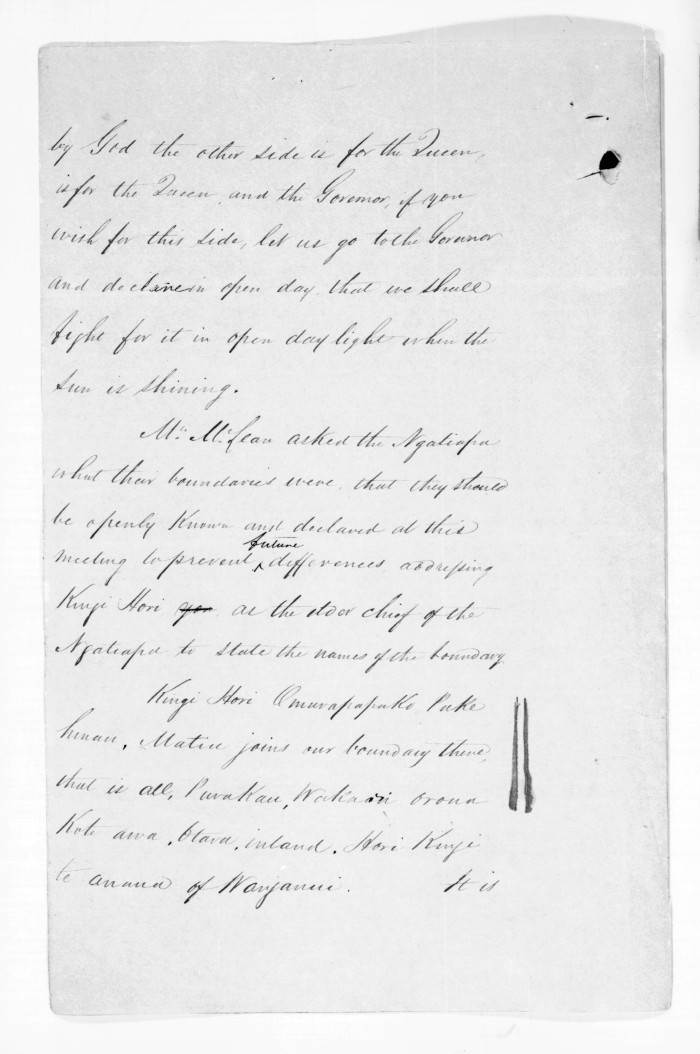 by God the other side is for the Queen,
is for the Queen, and the Governor, if you
wish for this side, let us go to the Governor
and declare in open day that we shall
fight for it in open day light when the
sun is shining.
Mr. McLean asked the Ngatiapa
what their boundaries were, that they should
be openly known and declared at this
meeting to prevent future differences addressing
Kingi Hori as the elder chief of the
Ngatiapa to state the names of the boundary
Kingi Hori Omurapapako Puke
hinau, Matiu joins our boundary there,
that is all, Purakau, Wakaari Oroua
Kote awa, Otara, inland, Hori Kingi
te anaua of Wanganui. It is